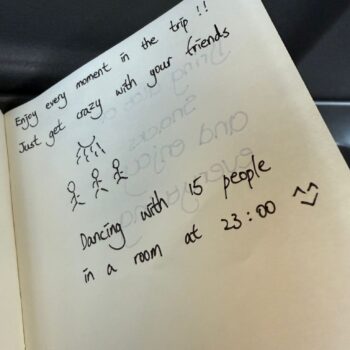 Enjoy every moment in the trip !!
Just get crazy with your friends
Dancing with 15 people
in a room at 23:00 ^^